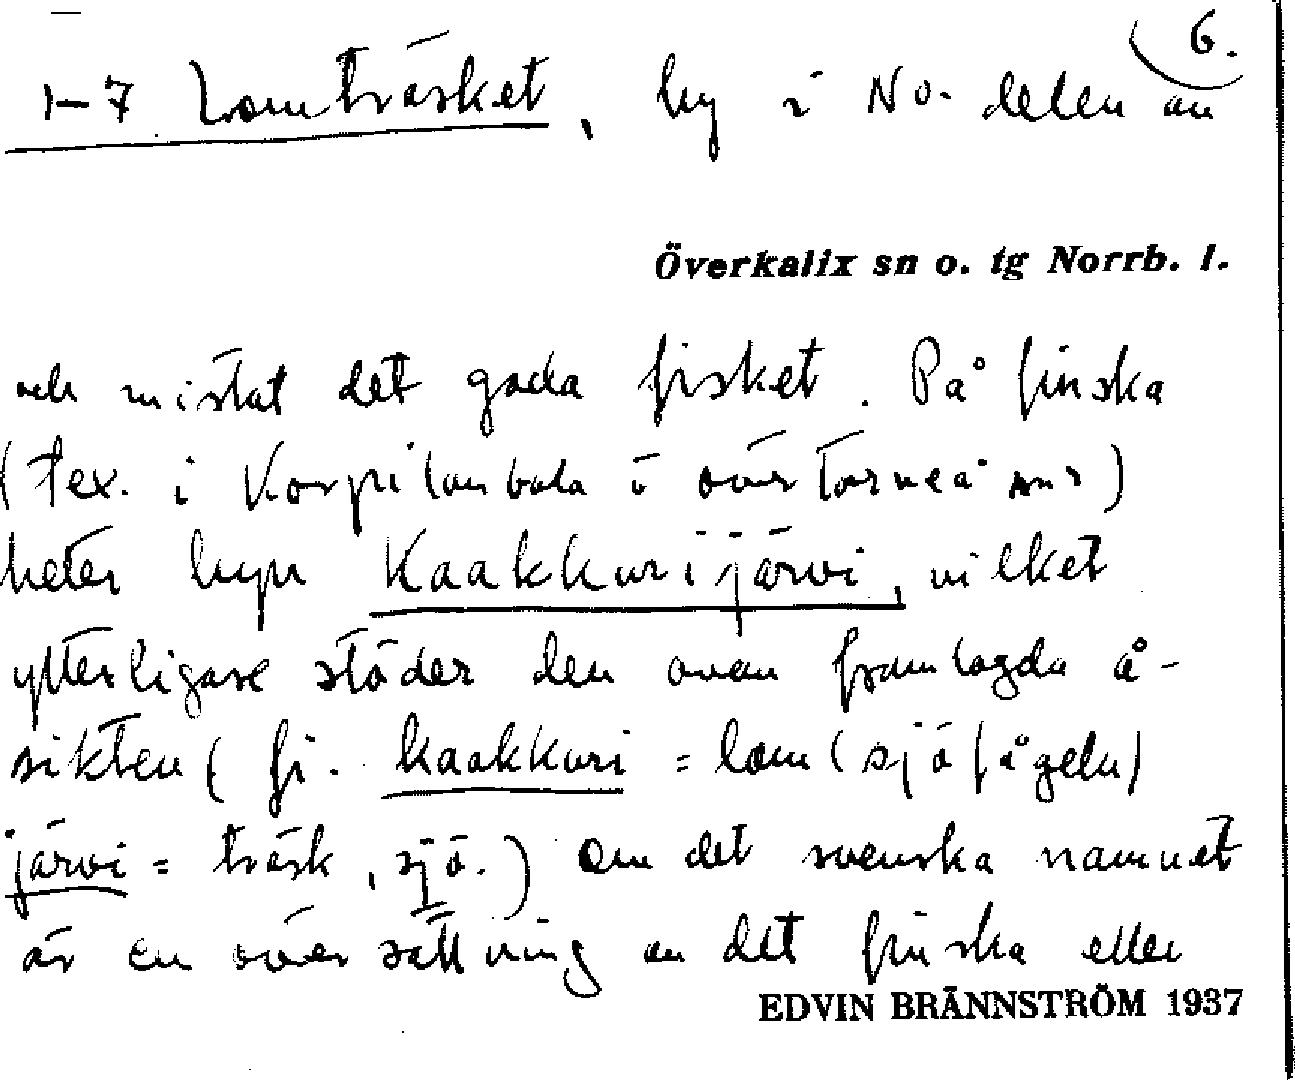 6.
1-7 Lomträsket, by i No. delen av
Överkalix sn o. tg Norrb. l.
och mistat det goda fisket. På finska
(t ex. i Korpilombolo i övertorneå snr)
heter byn Kaakkurijärvi, vilket
ytterligare stöder den ovan framlagda å-
sikten (fi. kaakkuri = lom (sjöfågeln)
järvi = träsk, sjö.) Om det svenska namnet
är en översättning av det finska eller
EDVIN BRÄNNSTRÖM 1937